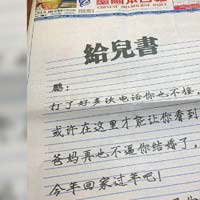 CHINESE MELBOURNE DAILY
給兒書
鹏:
打了好多次电话你也不接,
或许在这里才能让你看到
爸妈再也不逼你结婚了,
今年回家过年吧!